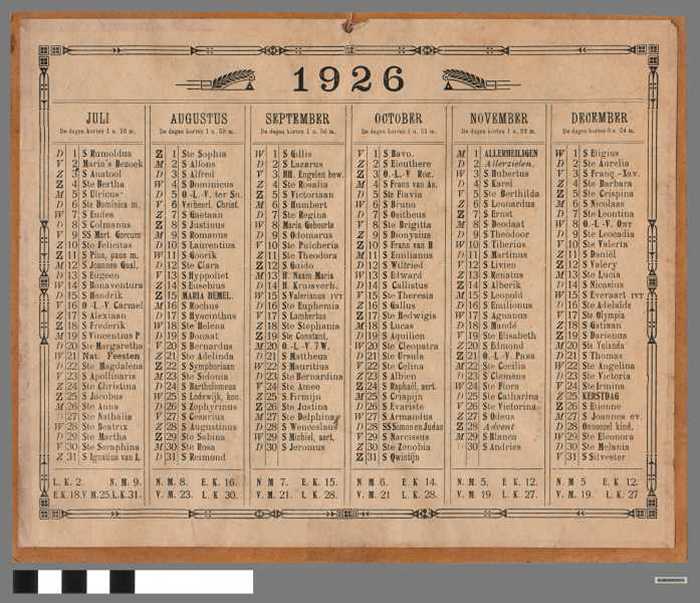 1926
JULI
De dagen korten 1 u. m.
D 1 S Rumoldus
V 2 Maria's Bezoek
Z 3 S Anatool
Z 4 Ste Bertha
M 5 S Ulricus
D 6 Ste Dominica m.
W 7 S Eudes
D 8 S Colmanus
V 9 SS Mart. Gorcum
Z 10 Ste Felicitas
Z 11 S Pius, paus m.
M 12 S Joannes Gual.
D 13 S Eugeen
W 14 S Bonaventura
D 15 S Hendrik
V 16 O.-L.-V. Carmel
Z 17 S Alexiaan
Z 18 S Frederik
M 19 S Vincentius P.
D 20 Ste Margaretha
W 21 Nat. Feesten
D 22 Ste Magdalena
V 23 S Apollinaris
Z 24 Ste Christina
Z 25 S Jacobus
M 26 Ste Anna
D 27 Ste Nathalia
W 28 Ste Beatrix
D 29 Ste Martha
V 30 Ste Seraphina
Z 31 S Ignatius van L.
L. K. 2. N. M. 9.
E.K.18. V.M.25. L.K.31.
AUGUSTUS
De dagen korten 1 u. m.
Z 1 Ste Sophia
M 2 S Alfons
D 3 S Alfred
W 4 S Dominicus
D 5 O.-L.-V. ter Sn.
V 6 Verheerl. Christ.
Z 7 S Gaetaan
Z 8 S Justinus
M 9 S Romanus
D 10 S Laurentius
W 11 S Goorik
D 12 Ste Clara
V 13 S Hyppoliet
Z 14 S Eusebius
Z 15 MARIA HEMEL.
M 16 S Rochus
D 17 S Hyacinthus
W 18 Ste Helena
D 19 S Donaat
V 20 S Bernardus
Z 21 Ste Adelinda
Z 22 S Symphoriaan
M 23 Ste Sidonia
D 24 S Bartholomeus
W 25 S Lodewijk, kon.
D 26 S Zephyrinus
V 27 S Cesarius
Z 28 S Augustinus
Z 29 Ste Sabina
M 30 Ste Rosa
D 31 S Reimond
N. M. 8. E. K. 16.
V. M. 23. L. K. 30.
SEPTEMBER
De dagen korten 1 u. m.
W 1 S Gillis
D 2 S Lazarus
V 3 HH. Engelen bew.
Z 4 Ste Rosalia
Z 5 S Victoriaan
M 6 S Humbert
D 7 Ste Regina
W 8 Maria Geboorte
D 9 S Odomarus
V 10 Ste Pulcheria
Z 11 Ste Theodora
Z 12 S Guido
M 13 H. Naam Maria
D 14 H. Kruisverh.
W 15 S Valerianus QVT
D 16 Ste Euphemia
V 17 S Lambertus
Z 18 Ste Stephania
Z 19 Ste Constant.
M 20 O.-L.-V. 7 W.
D 21 S Mattheus
W 22 S Mauritius
D 23 Ste Bernardina
V 24 Ste Ameo
Z 25 S Firmijn
Z 26 Ste Justina
M 27 Ste Delphina
D 28 S Wenceslaus
W 29 S Michiel, aart.
D 30 S Jeromus
N M 7. E. K. 15.
V. M. 21. L. K. 28.
OCTOBER
De dagen korten 1 u. 51 m.
V 1 S Bavo.
Z 2 S Eleuthere
Z 3 O.-L.-V Roz.
M 4 S Frans van As.
D 5 Ste Flavia
W 6 S Bruno
D 7 S Ositheus
V 8 Ste Brigitta
Z 9 S Dionysius
Z 10 S Frans van B
M 11 S Emilianus
D 12 S Wilfried
W 13 S Edward
D 14 S Callistus
V 15 Ste Theresia
Z 16 S Gallus
Z 17 Ste Hedwigis
M 18 S Lucas
D 19 S Aquilien
W 20 Ste Cleopatra
D 21 Ste Ursula
V 22 Ste Celina
Z 23 S Albien
Z 24 S Raphaël, aart.
M 25 S Crispijn
D 26 S Evariste
W 27 S Armandus
D 28 SS Simon en Judas
V 29 S Narcissus
Z 30 Ste Zenobia
Z 31 S Qwintijn
N M 6. E K 14.
V M. 21 L K 28.
NOVEMBER
De dagen korten 1 u. m.
M 1 ALLERHEILIGEN
D 2 Allerzielen.
W 3 S Hubertus
D 4 S Karel
V 5 Ste Berthilda
Z 6 S Leonardus
Z 7 S Ernst
M 8 S Deodaat
D 9 S Theodoor
W 10 S Tiberius
D 11 S Martinus
V 12 S Livien
Z 13 S Renatus
Z 14 S Alberik
M 15 S Leopold
D 16 S Emilionus
W 17 S Agnanus
D 18 S Maudé
V 19 Ste Elisabeth
Z 20 S Edmond
Z 21 O.-L.-V Pres
M 22 Ste Cecilia
D 23 S Clemens
W 24 Ste Flora
D 25 Ste Catharina
V 26 Ste Victorina
Z 27 S Odeus
Z 28 Advent
M 29 S Blanca
D 30 S Andries
N. M. 5, E. K. 12.
V. M. 19 L. K. 27.
DECEMBER
De dagen korten 0 u. 24 m.
W 1 S Eligius
D 2 Ste Aurelia
V 3 S Franç.-Xav.
Z 4 Ste Barbara
Z 5 Ste Crispina
M 6 S Nicolaas
D 7 Ste Leontina
W 8 O.-L.-V. Onv
D 9 Ste Leocadia
V 10 Ste Valeria
Z 11 S Daniël
Z 12 S Valery
M 13 Ste Lucia
D 14 S Nicasius
W 15 S Everaart QVT
D 16 Ste Adelaide
V 17 Ste Olympia
Z 18 S Gatiaan
Z 19 S Dariesus
M 20 Ste Yolanda
D 21 S Thomas
W 22 Ste Angelina
D 23 Ste Victoria
V 24 Ste Irmina
Z 25 KERSTDAG
Z 26 S Etienne
M 27 S Joannes ev.
D 28 Onnoozel kind.
W 29 Ste Eleonora
D 30 Ste Melania
V 31 S Silvester
N M 5 E K. 12
V. M. 19. L. K. 27